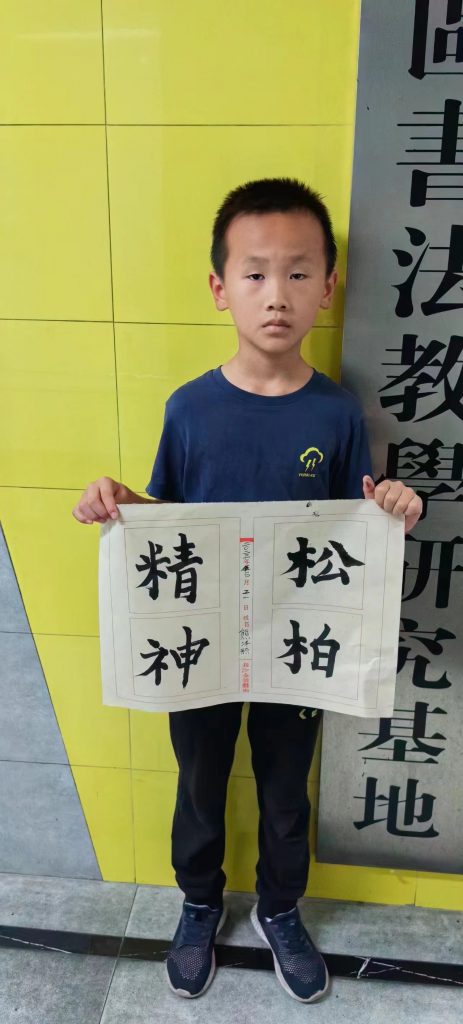 圖書法教學研究基地
松柏
精神